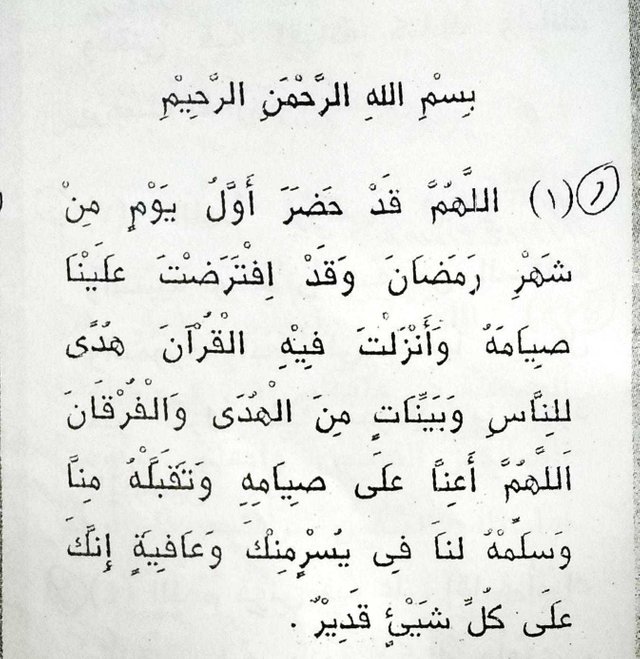 بِسْمِ اللهِ الرَّحْمَنِ الرَّحِيْمِ
(١) اللَّهُمَّ قَدْ حَضَرَ أَوَّلُ يَوْمٍ مِنْ
شَهْرِ رَمَضَانَ وَقَدْ اِفْتَرَضْتَ عَلَيْنَا
صِيَامَهُ وَأَنْزَلْتَ فِيْهِ الْقُرْآنَ هُدًى
لِلنَّاسِ وَبَيِّنَاتٍ مِنَ الْهُدَى وَالْفُرْقَانَ
اَللَّهُمَّ أَعِنَّا عَلَى صِيَامِهِ وَتَقَبَّلْهُ مِنَّا
وَسَلِّمْهُ لَنَا فِى يُسْرٍمِنْكَ وَعَافِيَةٍ إِنَّكَ
عَلَى كُلِّ شَيْئٍ قَدِيْرٌ .